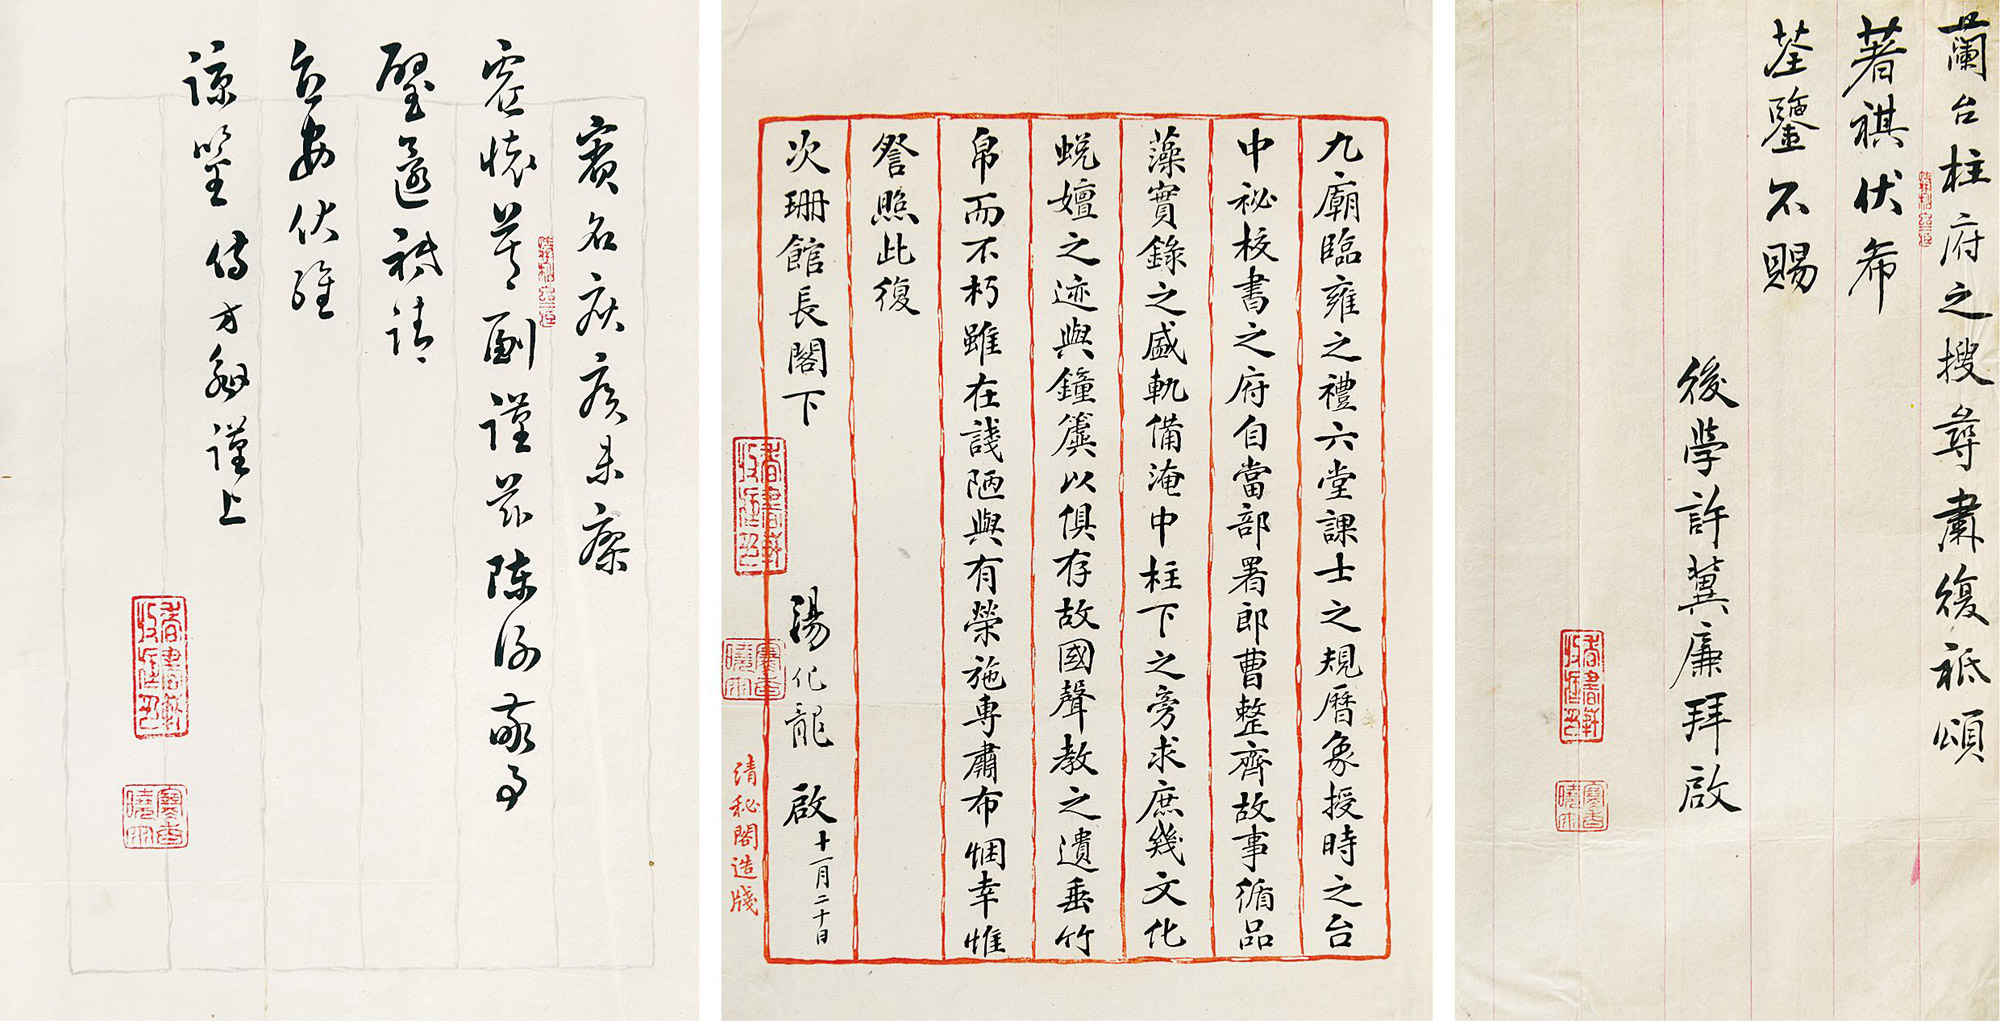 蘭台柱府之搜尋肅復祗頌
著祺伏希
荃鑒不賜
後學許冀廉拜啟
九廟臨雍之禮六堂課士之規曆象授時之台
中祕校書之府自當部署郎曹整齊故事循品
藻實錄之盛軌備淹中柱下之旁求庶幾文化
蛻嬗之迹與鐘簴以俱存故國聲教之遺垂竹
帛而不朽雖在譾陋與有榮施專肅布悃幸惟
詧照此復
次珊館長閣下
湯化龍啟十一月二十日
清秘閣造牋
名疾未瘳
虛懷莫副謹茲陳謝敬
璧還祗請
台安伏維
諒鑒 方謹上